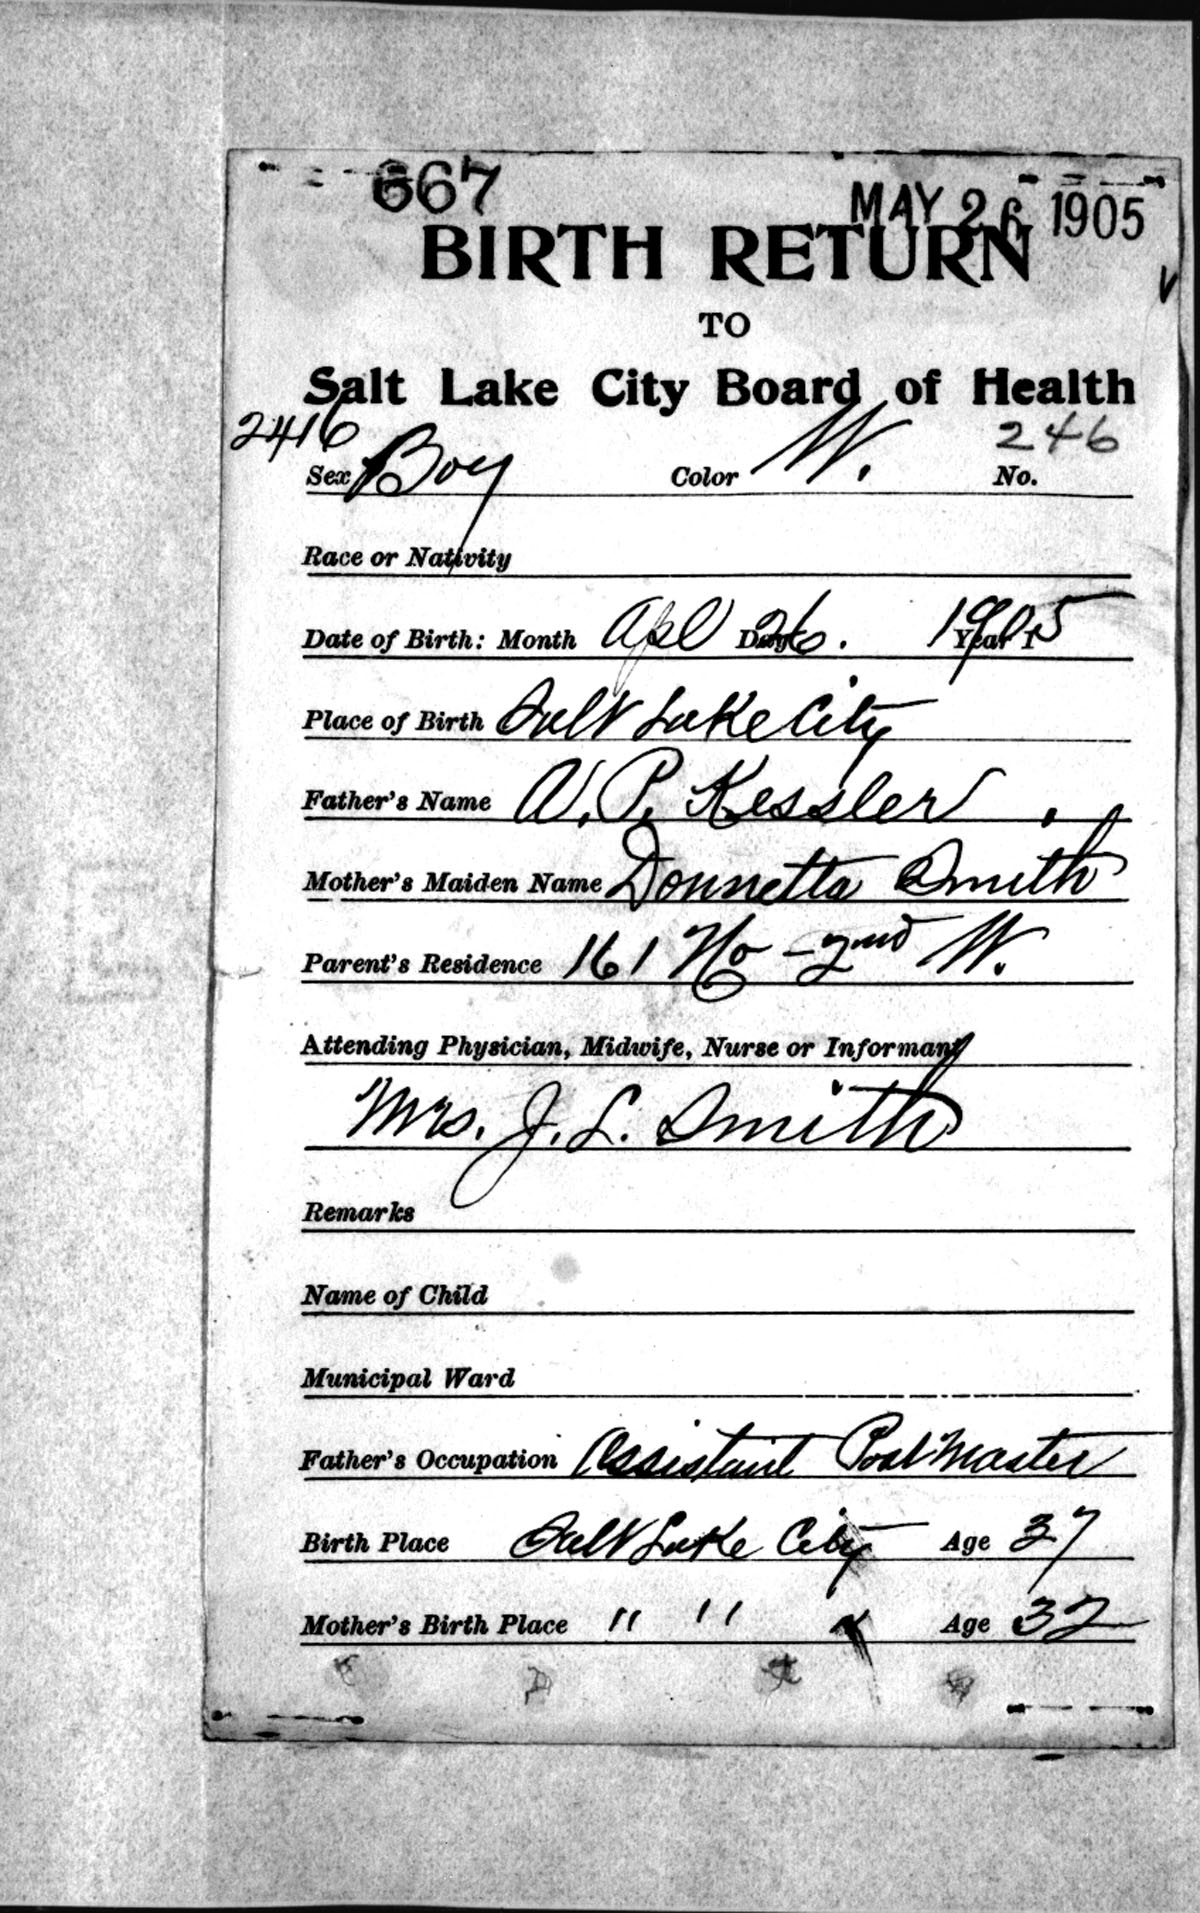 667
MAY 26 1905
BIRTH RETURN
TO
Salt Lake City Board of Health
2416 246
Sex Boy Color W. No.
Race or Nativity
Date of Birth: Month Apl Day 26. Year 1905
Place of Birth Salt Lake City
Father's Name A. P. Kessler
Mother's Maiden Name Donnetta Smith
Parent's Residence 161 No - 2nd W.
Attending Physician, Midwife, Nurse or Informant
Mrs. J. L. Smith
Remarks
Name of Child
Municipal Ward
Father's Occupation Assistant Post Master
Birth Place Salt Lake City Age 37
Mother's Birth Place " " " Age 32